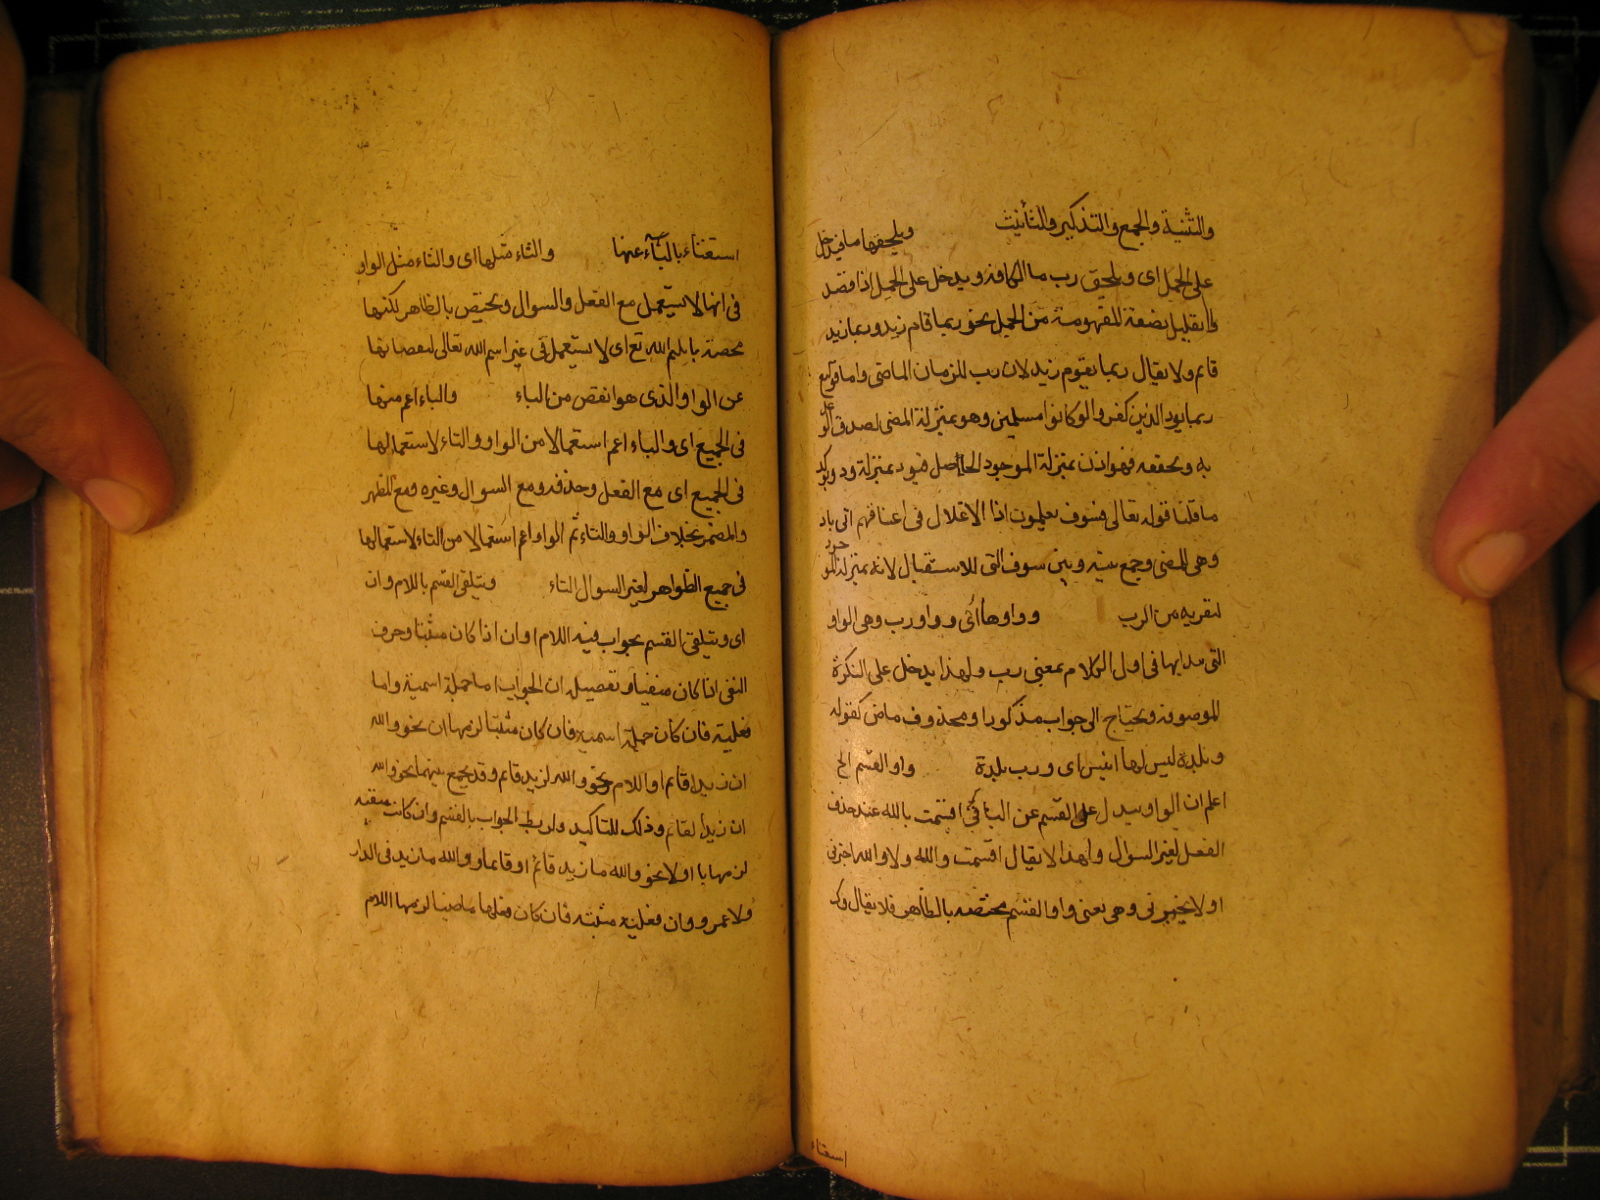 والتثنية والجمع والتذكير والتأنيث ويلحقها ما فيدخل
على الجمل اى ويلحق رب ما الكافة ويدخل على الجمل اذا قصد
تقليل المفهومة من الجمل نحو ربما قام زيد وربما زيد
قائم ولا يقال ربما يقوم زيد لان رب للزمان الماضى واما
ربما يود الذين كفروا لو كانوا مسلمين وهو بمنزلة المضى لصدق
به وتحققه فهو اذن بمنزلة الموجود الحاصل فيود بمنزلة ود ويوكد
ما قلنا قوله تعالى فسوف يعلمون اذا الاغلال فى اعناقهم اتى باذ
وهى للمضى وجمع بينه وبين سوف التى للاستقبال لانه بمنزلة
لتقريبه من الرب وواوها اى وواو رب وهى الواو
التى يبدا بها فى اول الكلام بمعنى رب ولهذا يدخل على النكرة
الموصوفة ويحتاج الى جواب مذكورا ومحذوف ماض كقوله
وبلدة ليس لها انيس اى ورب بلدة واو القسم الخ
اعلم ان الواو يبدل على القسم عن الباء فى اقسمت بالله عند حذف
الفعل لغير السوال ولهذا لا يقال اقسمت والله ولا والله اخبرنى
او لا يخبرنى وهى يعنى واو القسم مختصة بالظاهر فلا يقال وك
استغناء
استغناء بالباء عنها والتاء مثلها اى والتاء مثل الواو
فى انها لا يستعمل مع الفعل والسوال ويختص بالظاهر لكنها
مختصة باسم الله تع اى لا يستعمل فى غير اسم الله تعالى لنقصانها
عن الواو الذى هو انقص من الباء والباء اعم منها
فى الجميع اى والباء اعم استعمالا من الواو والتاء لاستعمالها
فى الجميع اى مع الفعل وحذفه ومع السوال وغيره ومع المظهر
والمضمر بخلاف الواو والتاء ثم الواو اعم استعمالا من التاء لاستعمالها
فى جميع الظواهر لغير السوال التاء ويتلقى القسم باللام وان
اى ويتلقى القسم بجواب فيه اللام او ان اذا كان مثبتا وحرف
النفى اذا كان منفيا وتفصيله ان الجواب اما جملة اسمية واما
فعلية فان كان جملة اسمية فان كان مثبتا لزمها ان نحو والله
ان زيدا قائم او اللام نحو والله لزيد قائم وقد يجمع بينهما نحو والله
ان زيدا لقائم وذلك للتاكيد ولربط الجواب بالقسم وان كانت منفية
لزمها ما او لا نحو والله ما زيد قائم او قائما و والله ما زيد فى الدار
ولا عمرو وان فعلية مثبتة فان كان فعلها ماضيا لزمها اللام